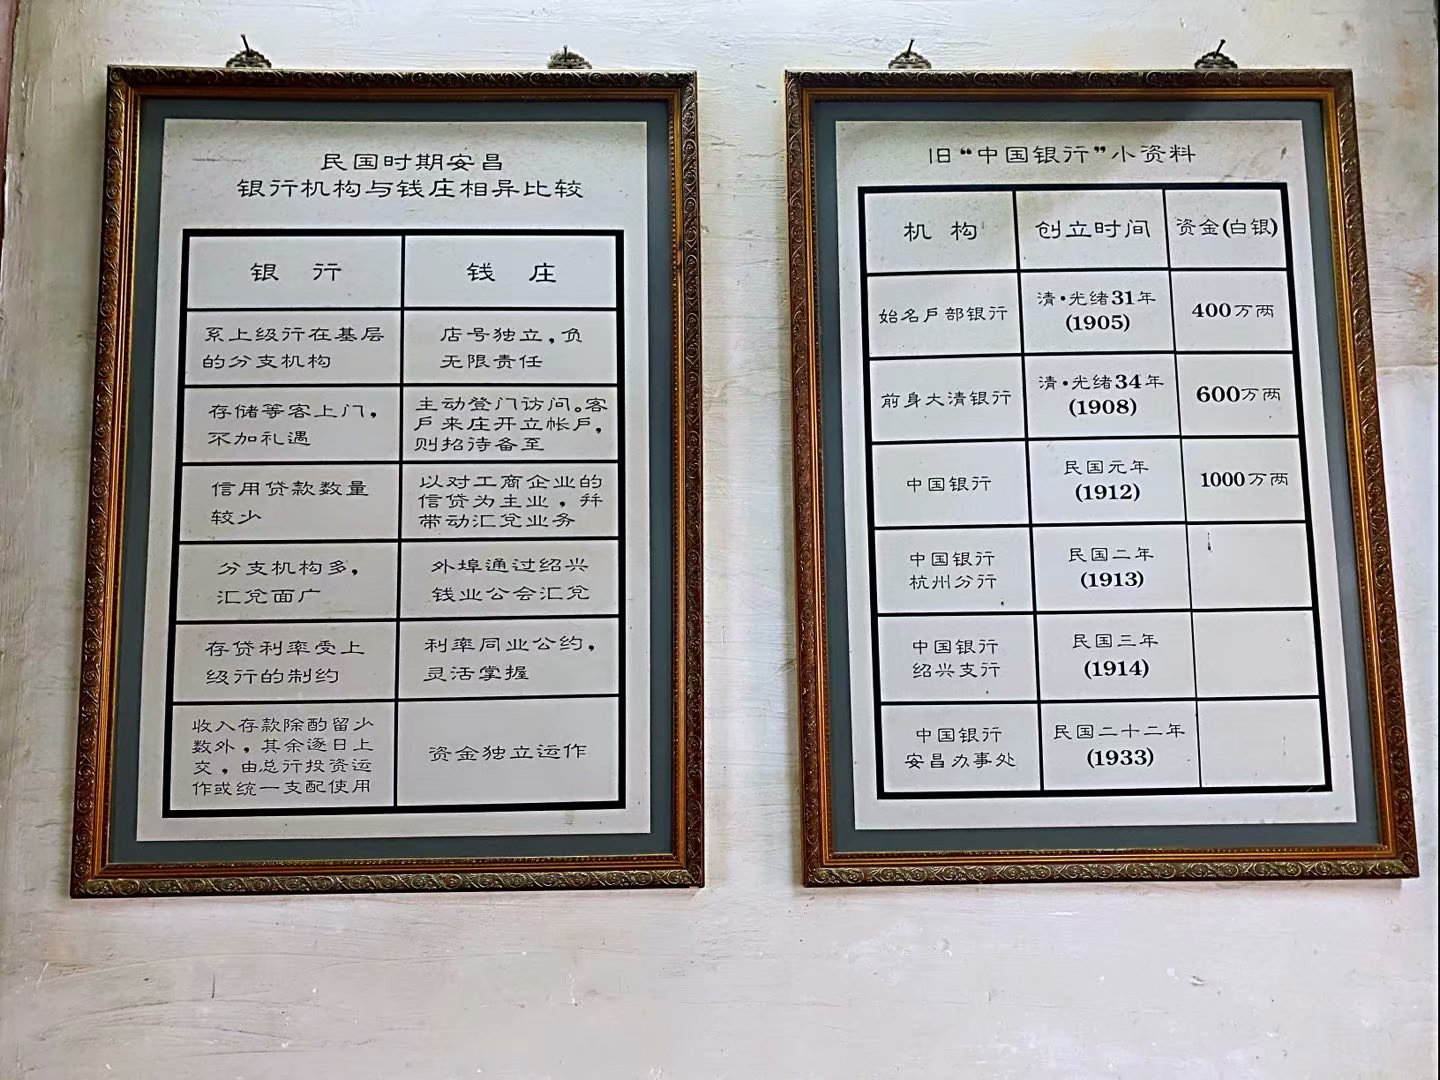 民国时期安昌
银行机构与钱庄相异比较
银 行
钱 庄
系上级行在基层
的分支机构
店号独立,负
无限责任
存储等客上门,
不加礼遇
主动登门访问。客
户来庄开立帐户,
则招待备至
信用贷款数量
较少
以对工商企业的
信贷为主业,并
带动汇兑业务
分支机构多,
汇兑面广
外埠通过绍兴
钱业公会汇兑
存贷利率受上
级行的制约
利率同业公约,
灵活掌握
收入存款除酌留少
数外,其余逐日上
交,由总行投资运
作或统一支配使用
资金独立运作
旧“中国银行”小资料
机 构
创立时间
资金(白银)
始名户部银行
清·光绪31年
(1905)
400万两
前身大清银行
清·光绪34年
(1908)
600万两
中国银行
民国元年
(1912)
1000万两
中国银行
杭州分行
民国二年
(1913)
中国银行
绍兴支行
民国三年
(1914)
中国银行
安昌办事处
民国二十二年
(1933)